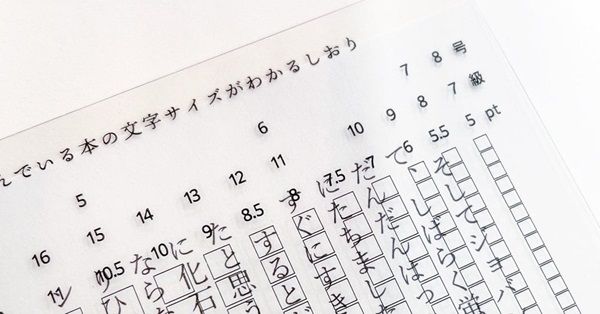 んでいる本の文字サイズがわかるしおり
5 6 7 8 号
16 15 14 13 12 11 10 9 8 7 級
11 10.5 10 9 8.5 8 7.5 7 6 5.5 5 pt
そしてジョバ
て、しばらく蛍
だんだんはっ
にたちました
すぐにすき
するとど
たと思う
に化石
ならな